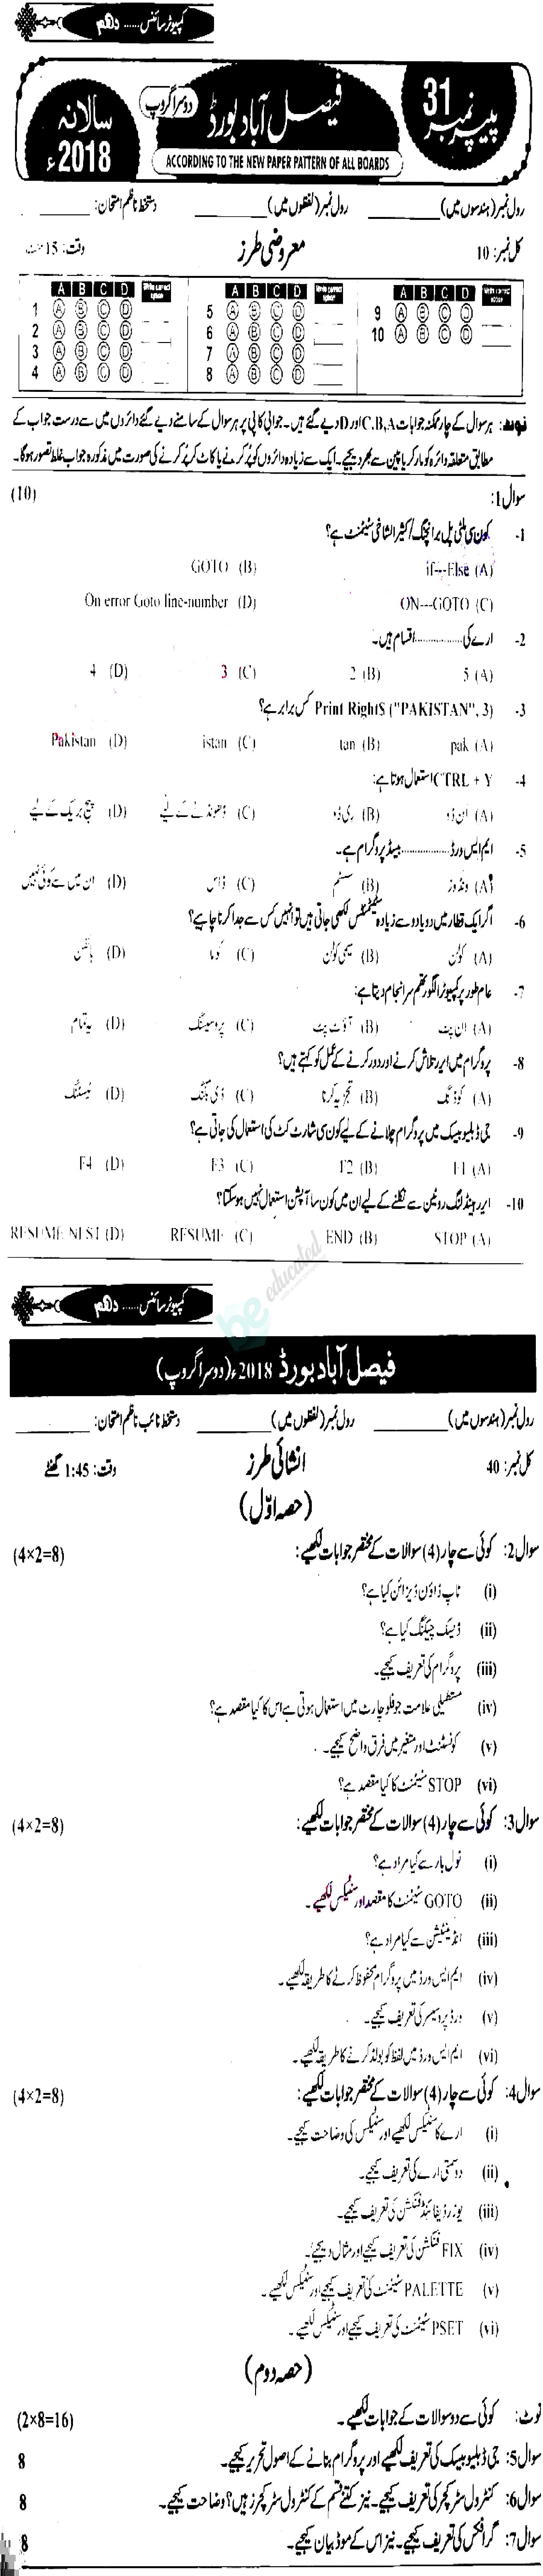 کمپیوٹر سائنس ...... دہم
پیپر نمبر 31
فیصل آباد بورڈ
دوسرا گروپ
سالانہ 2018ء
ACCORDING TO THE NEW PAPER PATTERN OF ALL BOARDS
رول نمبر (ہندسوں میں) ________ رول نمبر (لفظوں میں) ________ دستخط ناظم امتحان: ________
کل نمبر: 10 معروضی طرز وقت: 15 منٹ
A B C D Write correct option A B C D Write correct option A B C D Write correct option
1 A B C D 5 A B C D 9 A B C D
2 A B C D 6 A B C D 10 A B C D
3 A B C D 7 A B C D
4 A B C D 8 A B C D
نوٹ: ہر سوال کے چار ممکنہ جوابات C،B،A اور D دیے گئے ہیں۔ جوابی کاپی پر ہر سوال کے سامنے دیے گئے دائروں میں سے درست جواب کے
مطابق متعلقہ دائرہ کو مارکر یا پین سے بھر دیجیے۔ ایک سے زیادہ دائروں کو پُر کرنے یا کاٹ کر پُر کرنے کی صورت میں مذکورہ جواب غلط تصور ہوگا۔
سوال 1: (10)
1- کون سی ملٹی پل برانچنگ/کثیر الشاخی سٹیٹمنٹ ہے؟
(A) if---Else (B) GOTO
(C) ON---GOTO (D) On error Goto line-number
2- ارے کی ................ اقسام ہیں۔
(A) 5 (B) 2 (C) 3 (D) 4
3- Print Right$ ("PAKISTAN", 3) کس برابر ہے؟
(A) pak (B) tan (C) istan (D) Pakistan
4- CTRL + Y استعمال ہوتا ہے:
(A) اَن ڈو (B) ری ڈو (C) ڈھونڈنے کے لیے (D) پیج بریک کے لیے
5- ایم ایس ورڈ ................ بیسڈ پروگرام ہے۔
(A) ونڈوز (B) سسٹم (C) ڈاس (D) ان میں سے کوئی نہیں
6- اگر ایک قطار میں دو یا دو سے زیادہ سٹیٹمنٹس لکھی جاتی ہیں تو انہیں کس سے جدا کرنا چاہیے؟
(A) کولن (B) سیمی کولن (C) کوما (D) ہائفن
7- عام طور پر کمپیوٹر الگورتھم سرانجام دیتا ہے:
(A) ان پٹ (B) آؤٹ پٹ (C) پروسیسنگ (D) یہ تمام
8- پروگرام میں ایرر تلاش کرنے اور دور کرنے کے عمل کو کہتے ہیں؟
(A) کوڈنگ (B) تجزیہ کرنا (C) ڈی بگنگ (D) ٹیسٹنگ
9- جی ڈبلیو بیسک میں پروگرام چلانے کے لیے کون سی شارٹ کٹ کی استعمال کی جاتی ہے؟
(A) F1 (B) F2 (C) F3 (D) F4
10- ایرر ہینڈلنگ روٹین سے نکلنے کے لیے ان میں کون سا آپشن استعمال نہیں ہو سکتا؟
(A) STOP (B) END (C) RESUME (D) RESUME NEST
be educated
کمپیوٹر سائنس ...... دہم
فیصل آباد بورڈ 2018ء (دوسرا گروپ)
رول نمبر (ہندسوں میں) ________ رول نمبر (لفظوں میں) ________ دستخط نائب ناظم امتحان: ________
کل نمبر: 40 انشائی طرز وقت: 1:45 گھنٹے
(حصہ اوّل)
سوال 2: کوئی سے چار (4) سوالات کے مختصر جوابات لکھیے: (4×2=8)
(i) ٹاپ ڈاؤن ڈیزائن کیا ہے؟
(ii) ڈیسک چیکنگ کیا ہے؟
(iii) پروگرام کی تعریف کیجیے۔
(iv) مستطیلی علامت جو فلو چارٹ میں استعمال ہوتی ہے اس کا کیا مقصد ہے؟
(v) کونسٹنٹ اور متغیر میں فرق واضح کیجیے۔
(vi) STOP سٹیٹمنٹ کا کیا مقصد ہے؟
سوال 3: کوئی سے چار (4) سوالات کے مختصر جوابات لکھیے: (4×2=8)
(i) ٹول بار سے کیا مراد ہے؟
(ii) GOTO سٹیٹمنٹ کا مقصد اور سنٹیکس لکھیے۔
(iii) انڈینٹیشن سے کیا مراد ہے؟
(iv) ایم ایس ورڈ میں پروگرام محفوظ کرنے کا طریقہ لکھیے۔
(v) ورڈ پروسیسر کی تعریف کیجیے۔
(vi) ایم ایس ورڈ میں لفظ کو بولڈ کرنے کا طریقہ لکھیے۔
سوال 4: کوئی سے چار (4) سوالات کے مختصر جوابات لکھیے: (4×2=8)
(i) ارے کا سنٹیکس لکھیے اور سنٹیکس کی وضاحت کیجیے۔
(ii) دو سمتی ارے کی تعریف کیجیے۔
(iii) یوزر ڈیفائنڈ فنکشن کی تعریف کیجیے۔
(iv) FIX فنکشن کی تعریف کیجیے اور مثال دیجیے۔
(v) PALETTE سٹیٹمنٹ کی تعریف کیجیے اور سنٹیکس لکھیے۔
(vi) PSET سٹیٹمنٹ کی تعریف کیجیے اور سنٹیکس لکھیے۔
(حصہ دوم)
نوٹ: کوئی سے دو سوالات کے جوابات لکھیے۔ (2×8=16)
سوال 5: جی ڈبلیو بیسک کی تعریف لکھیے اور پروگرام بنانے کے اصول تحریر کیجیے۔ 8
سوال 6: کنٹرول سٹرکچر کی تعریف کیجیے۔ نیز کتنے قسم کے کنٹرول سٹرکچرز ہیں؟ وضاحت کیجیے۔ 8
سوال 7: گرافکس کی تعریف کیجیے۔ نیز اس کے موڈ بیان کیجیے۔ 8